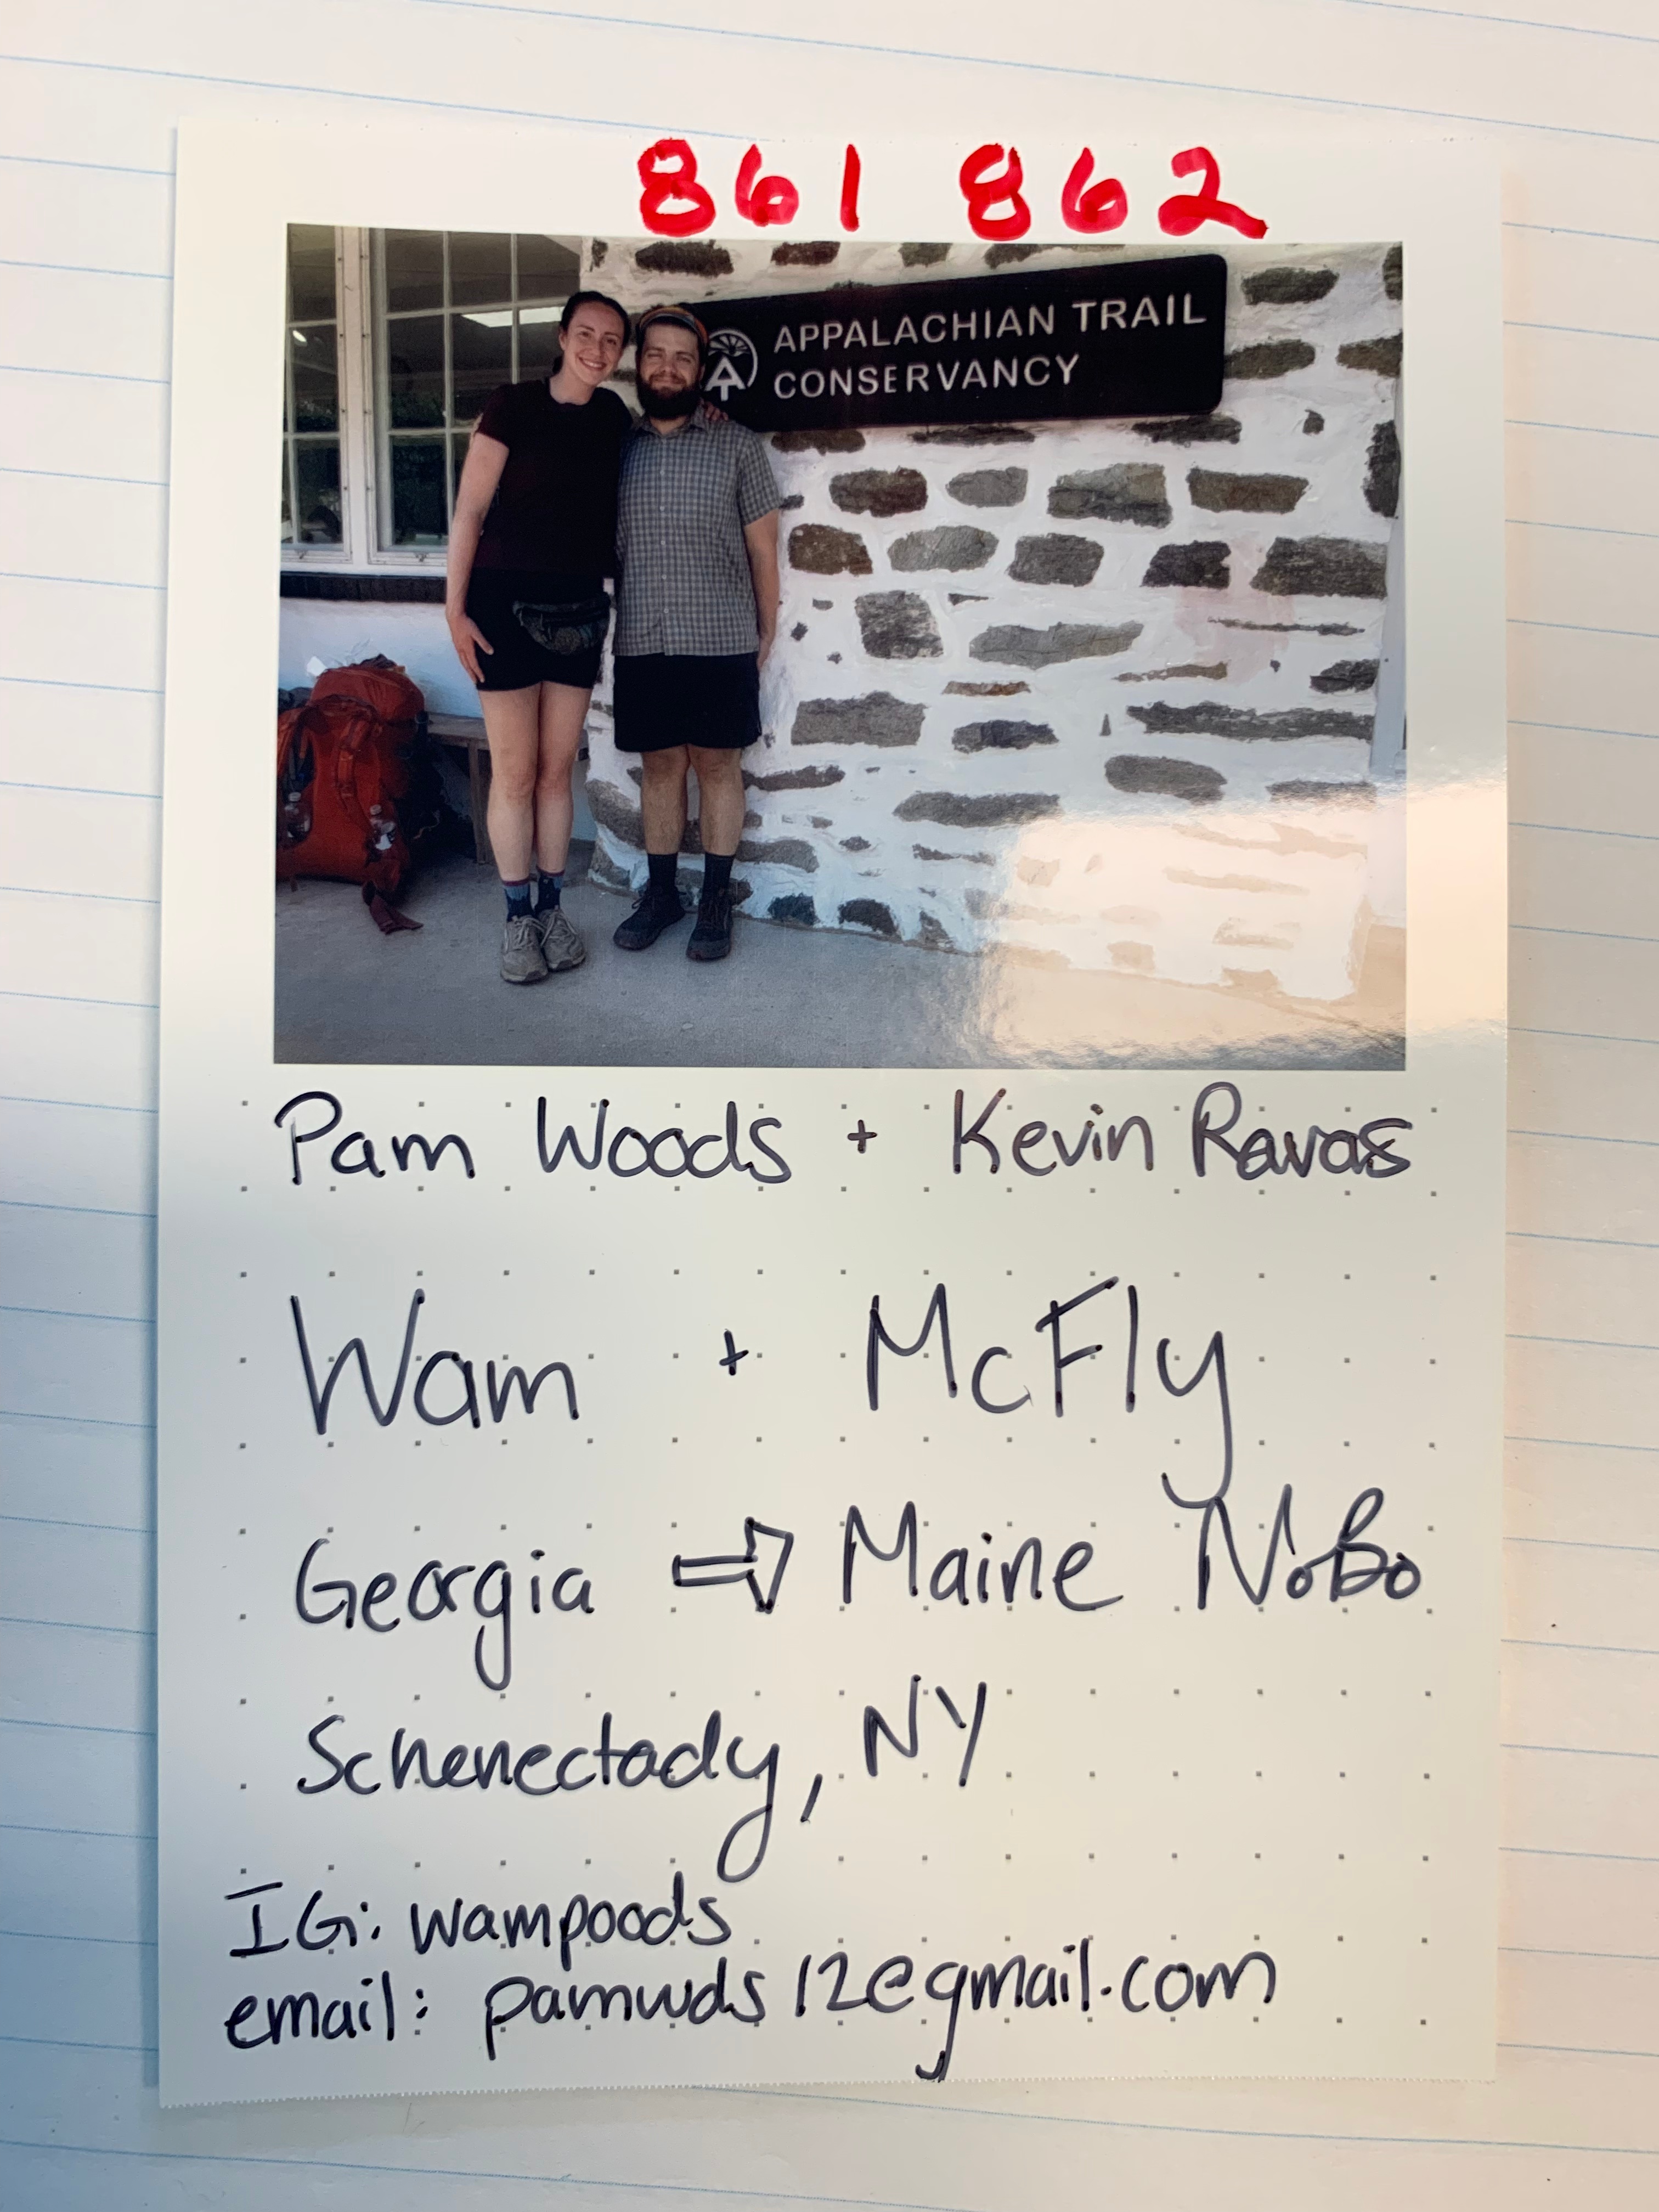 861 862
APPALACHIAN TRAIL
CONSERVANCY
Pam Woods + Kevin Ravas
Wam + McFly
Georgia ⇨ Maine NoBo
Schenectady, NY
IG: wampoods
email: pamwds12@gmail.com